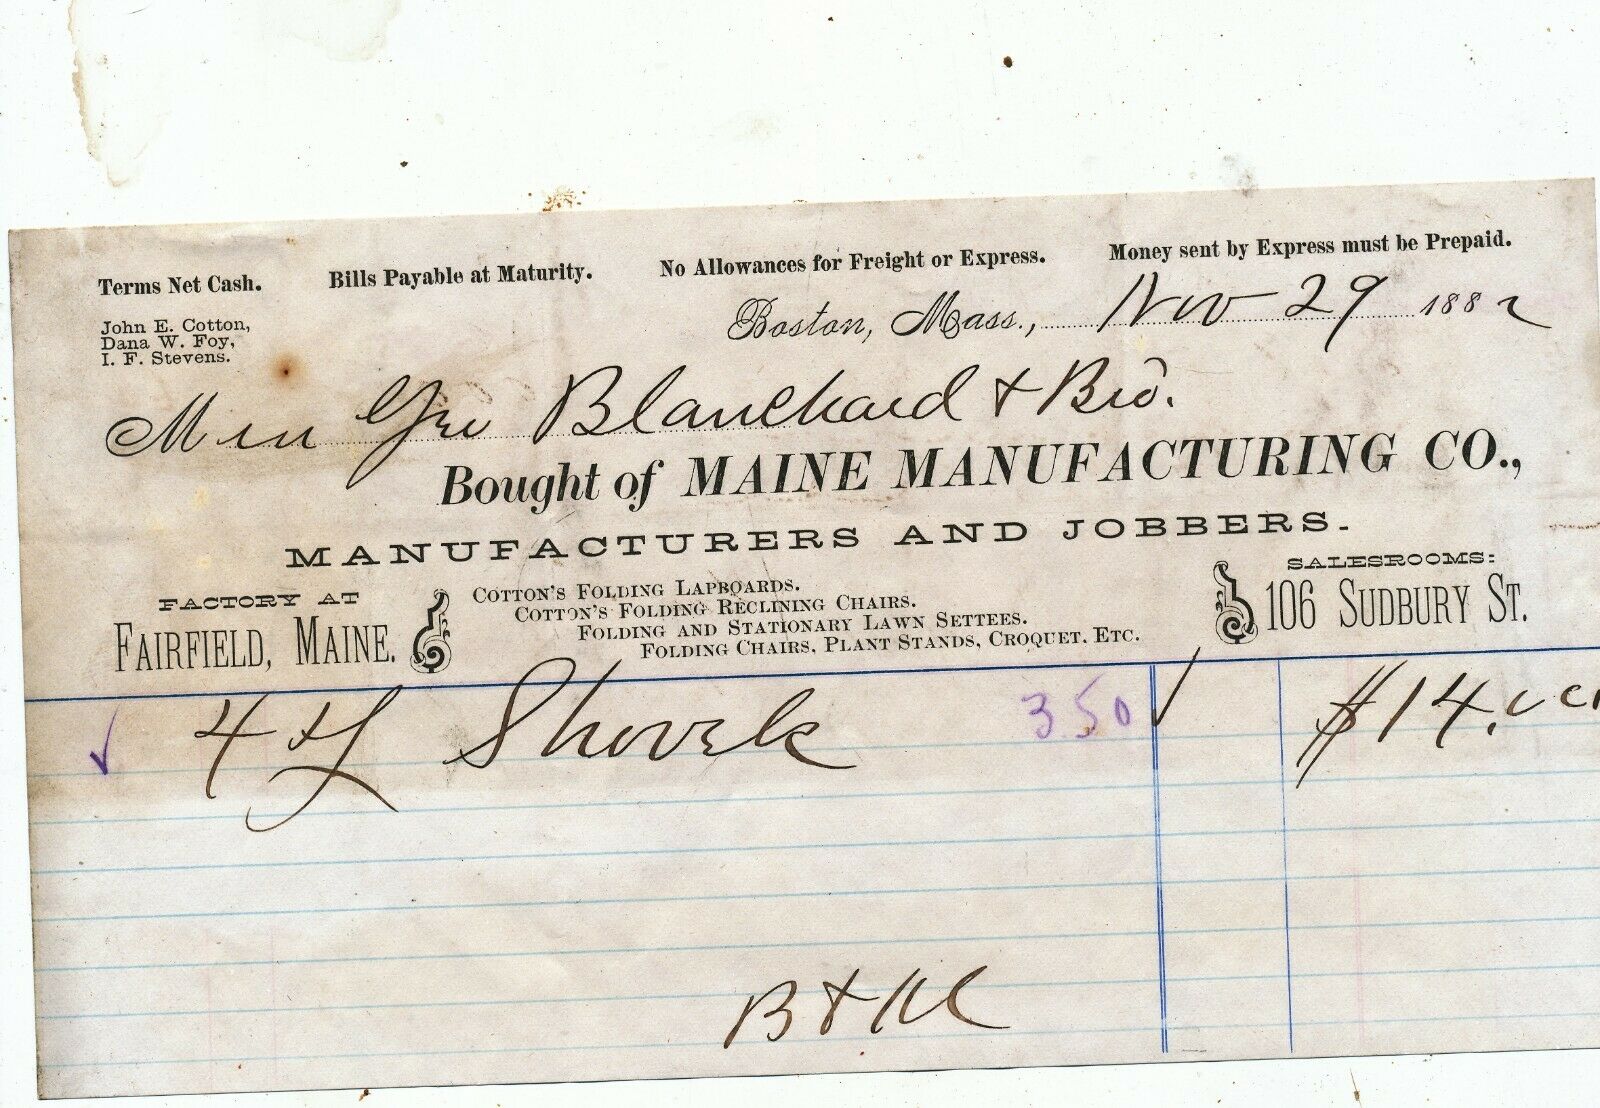 Terms Net Cash. Bills Payable at Maturity. No Allowances for Freight or Express. Money sent by Express must be Prepaid.
John E. Cotton,
Dana W. Foy,
I. F. Stevens.
Boston, Mass., Nov 29 1882
Geo Blanchard & Bro.
Bought of MAINE MANUFACTURING CO.,
MANUFACTURERS AND JOBBERS.
FACTORY AT
FAIRFIELD, MAINE.
COTTON'S FOLDING LAPBOARDS.
COTTON'S FOLDING RECLINING CHAIRS.
FOLDING AND STATIONARY LAWN SETTEES.
FOLDING CHAIRS, PLANT STANDS, CROQUET, ETC.
SALESROOMS:
106 SUDBURY ST.
4 Shovels 3.50 $14.00